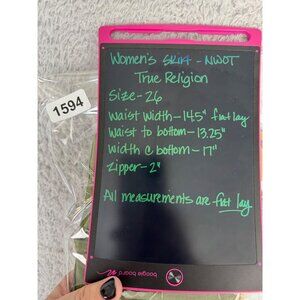 Women's Skirt - NWOT
True Religion
Size - 26
1594
Waist Width - 14.5" flat lay
Waist to bottom - 13.25"
Width @ bottom - 17"
Zipper - 2"
All measurements are flat lay
boogie board